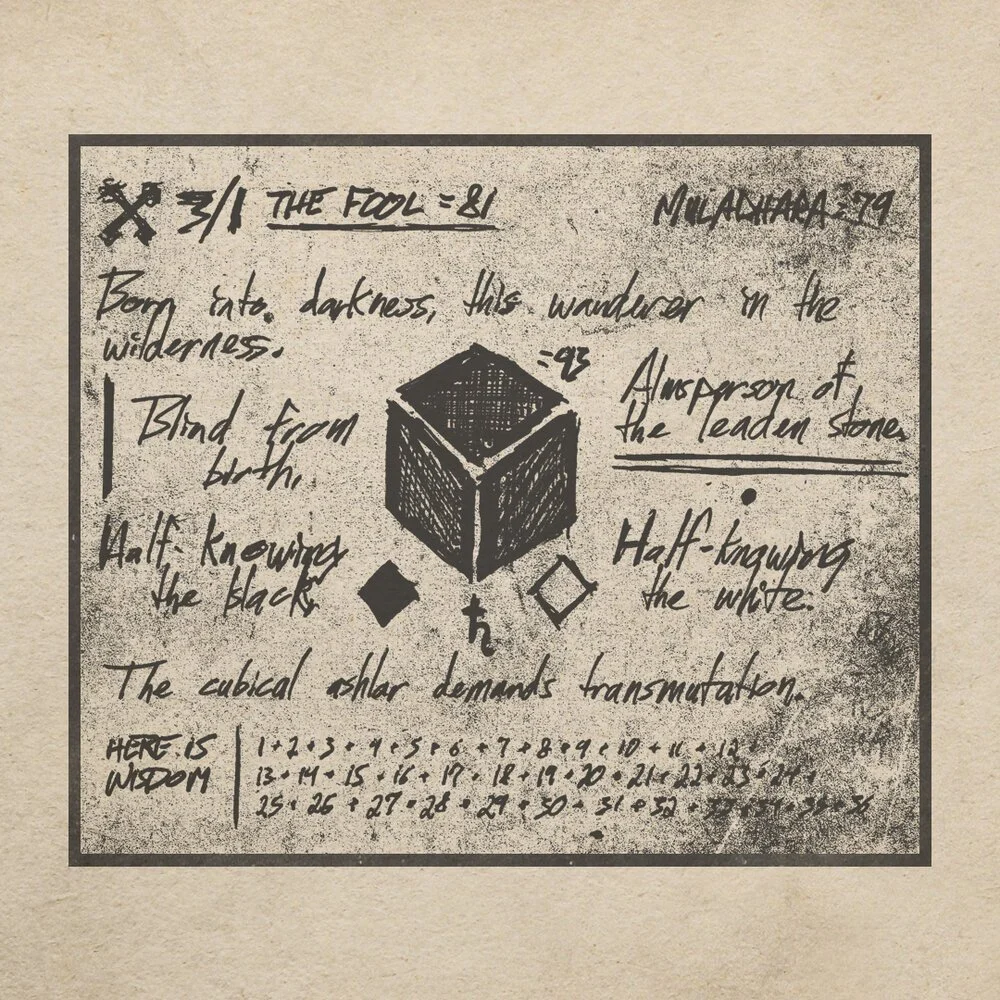 3/1 THE FOOL = 81
MULADHARA = 79
Born into darkness, this wanderer in the
wilderness.
= 93
Blind from
birth,
Almsperson of
the leaden stone.
Half-knowing
the black,
Half-knowing
the white.
♄
The cubical ashlar demands transmutation.
HERE IS
WISDOM
1 + 2 + 3 + 4 + 5 + 6 + 7 + 8 + 9 + 10 + 11 + 12 +
13 + 14 + 15 + 16 + 17 + 18 + 19 + 20 + 21 + 22 + 23 + 24 +
25 + 26 + 27 + 28 + 29 + 30 + 31 + 32 + 33 + 34 + 35 + 36